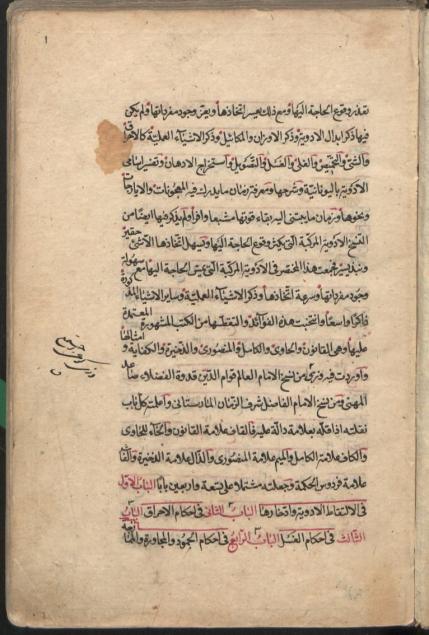 بقدر وقوع الحاجة اليها ومع ذلك يعسر اتخاذها ويعز وجود مفرداتها ولم يكن
فيها ذكر ابدال الادوية وذكر الاوزان والمكائيل وذكر الاشياء العملية كالاحراق
والشي والتحميص والقلي والغسل والتسويل واستخراج الادهان وتفسير اسامى
الادوية باليونانية وشرحها ومعرفة زمان ما يدرك فيه المعجونات والايارجات
ونحوها وزمان ما ينتهى اليه بقاء قوتها ولم يذكر فيها ايضا من
النسخ الادوية المركبة التى يكثر وقوع الحاجة اليها ويسهل اتخاذها الا شئ حقير
فجمعت هذا المختصر فى الادوية المركبة التى يمس الحاجة اليها مع سهولة
وجود مفرداتها وسرعة اتخاذها وذكر الاشياء العملية وساير الاشياء المذكورة
ذكرا واسعا وانتخبت هذه الفوائد والتقطتها من الكتب المشهورة المعتمدة
عليها وهى القانون والحاوى والكامل والمنصورى والذخيرة والكفاية و
واوردت فيه من نسخ الامام العالم قوام الدين قدوة الفضلاء صاعد
المهنى ومن نسخ الامام الفاضل شرف الزمان المارستانى واعلمت كل باب
نقلته اذا قلته بعلامة دالة عليه فالقاف علامة القانون والحاء للحاوى
والكاف علامة الكامل والميم علامة المنصورى والذال علامة الذخيرة والفاء
علامة فردوس الحكمة وجعلته مشتملا على تسعة واربعين بابا الباب الاول
فى الالتقاط الادوية وادخارها الباب الثانى فى احكام الاحراق الباب
الثالث فى احكام الغسل الباب الرابع فى احكام الجمود والمجاورة